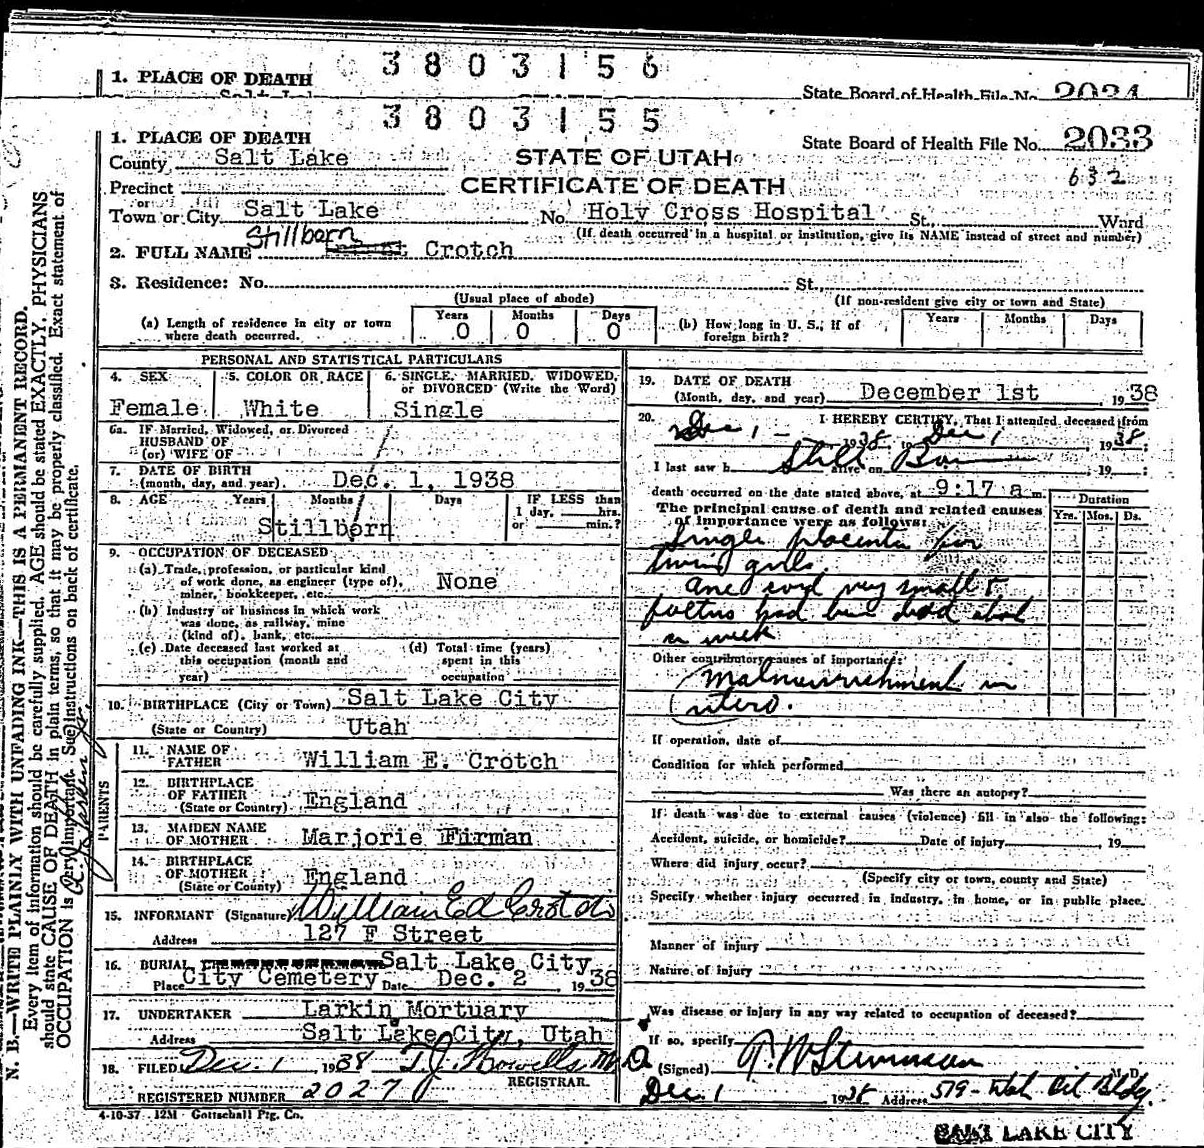 3803156
1. PLACE OF DEATH
State Board of Health File No. 2034
3803155
1. PLACE OF DEATH
State Board of Health File No. 2033
County Salt Lake
STATE OF UTAH
632
Precinct
CERTIFICATE OF DEATH
or
Town or City Salt Lake No. Holy Cross Hospital St. Ward
(If death occurred in a hospital or institution, give its NAME instead of street and number)
Stillborn
2. FULL NAME Crotch
3. Residence: No. St.
(Usual place of abode)
(If non-resident give city or town and State)
(a) Length of residence in city or town where death occurred.
Years Months Days
0 0 0
(b) How long in U. S., if of foreign birth?
Years Months Days
PERSONAL AND STATISTICAL PARTICULARS
4. SEX
Female
5. COLOR OR RACE
White
6. SINGLE, MARRIED, WIDOWED, or DIVORCED (Write the Word)
Single
6a. IF Married, Widowed, or Divorced
HUSBAND OF
(or) WIFE OF
7. DATE OF BIRTH
(month, day, and year). Dec. 1, 1938
8. AGE Years Months Days
IF LESS than
1 day, hrs.
or min.?
Stillborn
9. OCCUPATION OF DECEASED
(a) Trade, profession, or particular kind
of work done, as engineer (type of),
miner, bookkeeper, etc.
None
(b) Industry or business in which work
was done, as railway, mine
(kind of), bank, etc.
(c) Date deceased last worked at
this occupation (month and
year)
(d) Total time (years)
spent in this
occupation
10. BIRTHPLACE (City or Town) Salt Lake City
(State or Country) Utah
PARENTS
11. NAME OF
FATHER William E. Crotch
12. BIRTHPLACE
OF FATHER
(State or Country) England
13. MAIDEN NAME
OF MOTHER Marjorie Firman
14. BIRTHPLACE
OF MOTHER
(State or Country) England
15. INFORMANT (Signature) William Ed Crotch
Address 127 F Street
16. BURIAL Salt Lake City
Place City Cemetery Date Dec. 2, 1938
17. UNDERTAKER Larkin Mortuary
Address Salt Lake City, Utah
18. FILED Dec. 1 1938 T.J. Howells M.D.
REGISTRAR.
REGISTERED NUMBER 2027
4-10-37 12M Gottschall Ptg. Co.
19. DATE OF DEATH
(Month, day, and year) December 1st, 1938
20. I HEREBY CERTIFY, That I attended deceased from
Dec 1 - 1938 to Dec 1 1938.
I last saw h alive on Still Born 19 ;
death occurred on the date stated above, at 9:17 a m.
The principal cause of death and related causes
of importance were as follows:
Duration
Yrs. Mos. Ds.
Single placenta for
twin girls.
One cord very small &
foetus had been dead about
a week
Other contributory causes of importance:
Malnourishment in
utero.
If operation, date of
Condition for which performed
Was there an autopsy?
If death was due to external causes (violence) fill in also the following:
Accident, suicide, or homicide? Date of injury , 19
Where did injury occur?
(Specify city or town, county and State)
Specify whether injury occurred in industry, in home, or in public place.
Manner of injury
Nature of injury
Was disease or injury in any way related to occupation of deceased?
If so, specify
(Signed) M. D.
Dec 1 1938 Address 579 - Bldg.
SALT LAKE CITY
N. B.—WRITE PLAINLY WITH UNFADING INK—THIS IS A PERMANENT RECORD.
Every item of information should be carefully supplied. AGE should be stated EXACTLY. PHYSICIANS
should state CAUSE OF DEATH in plain terms, so that it may be properly classified. Exact statement of
OCCUPATION is very important. See instructions on back of certificate.